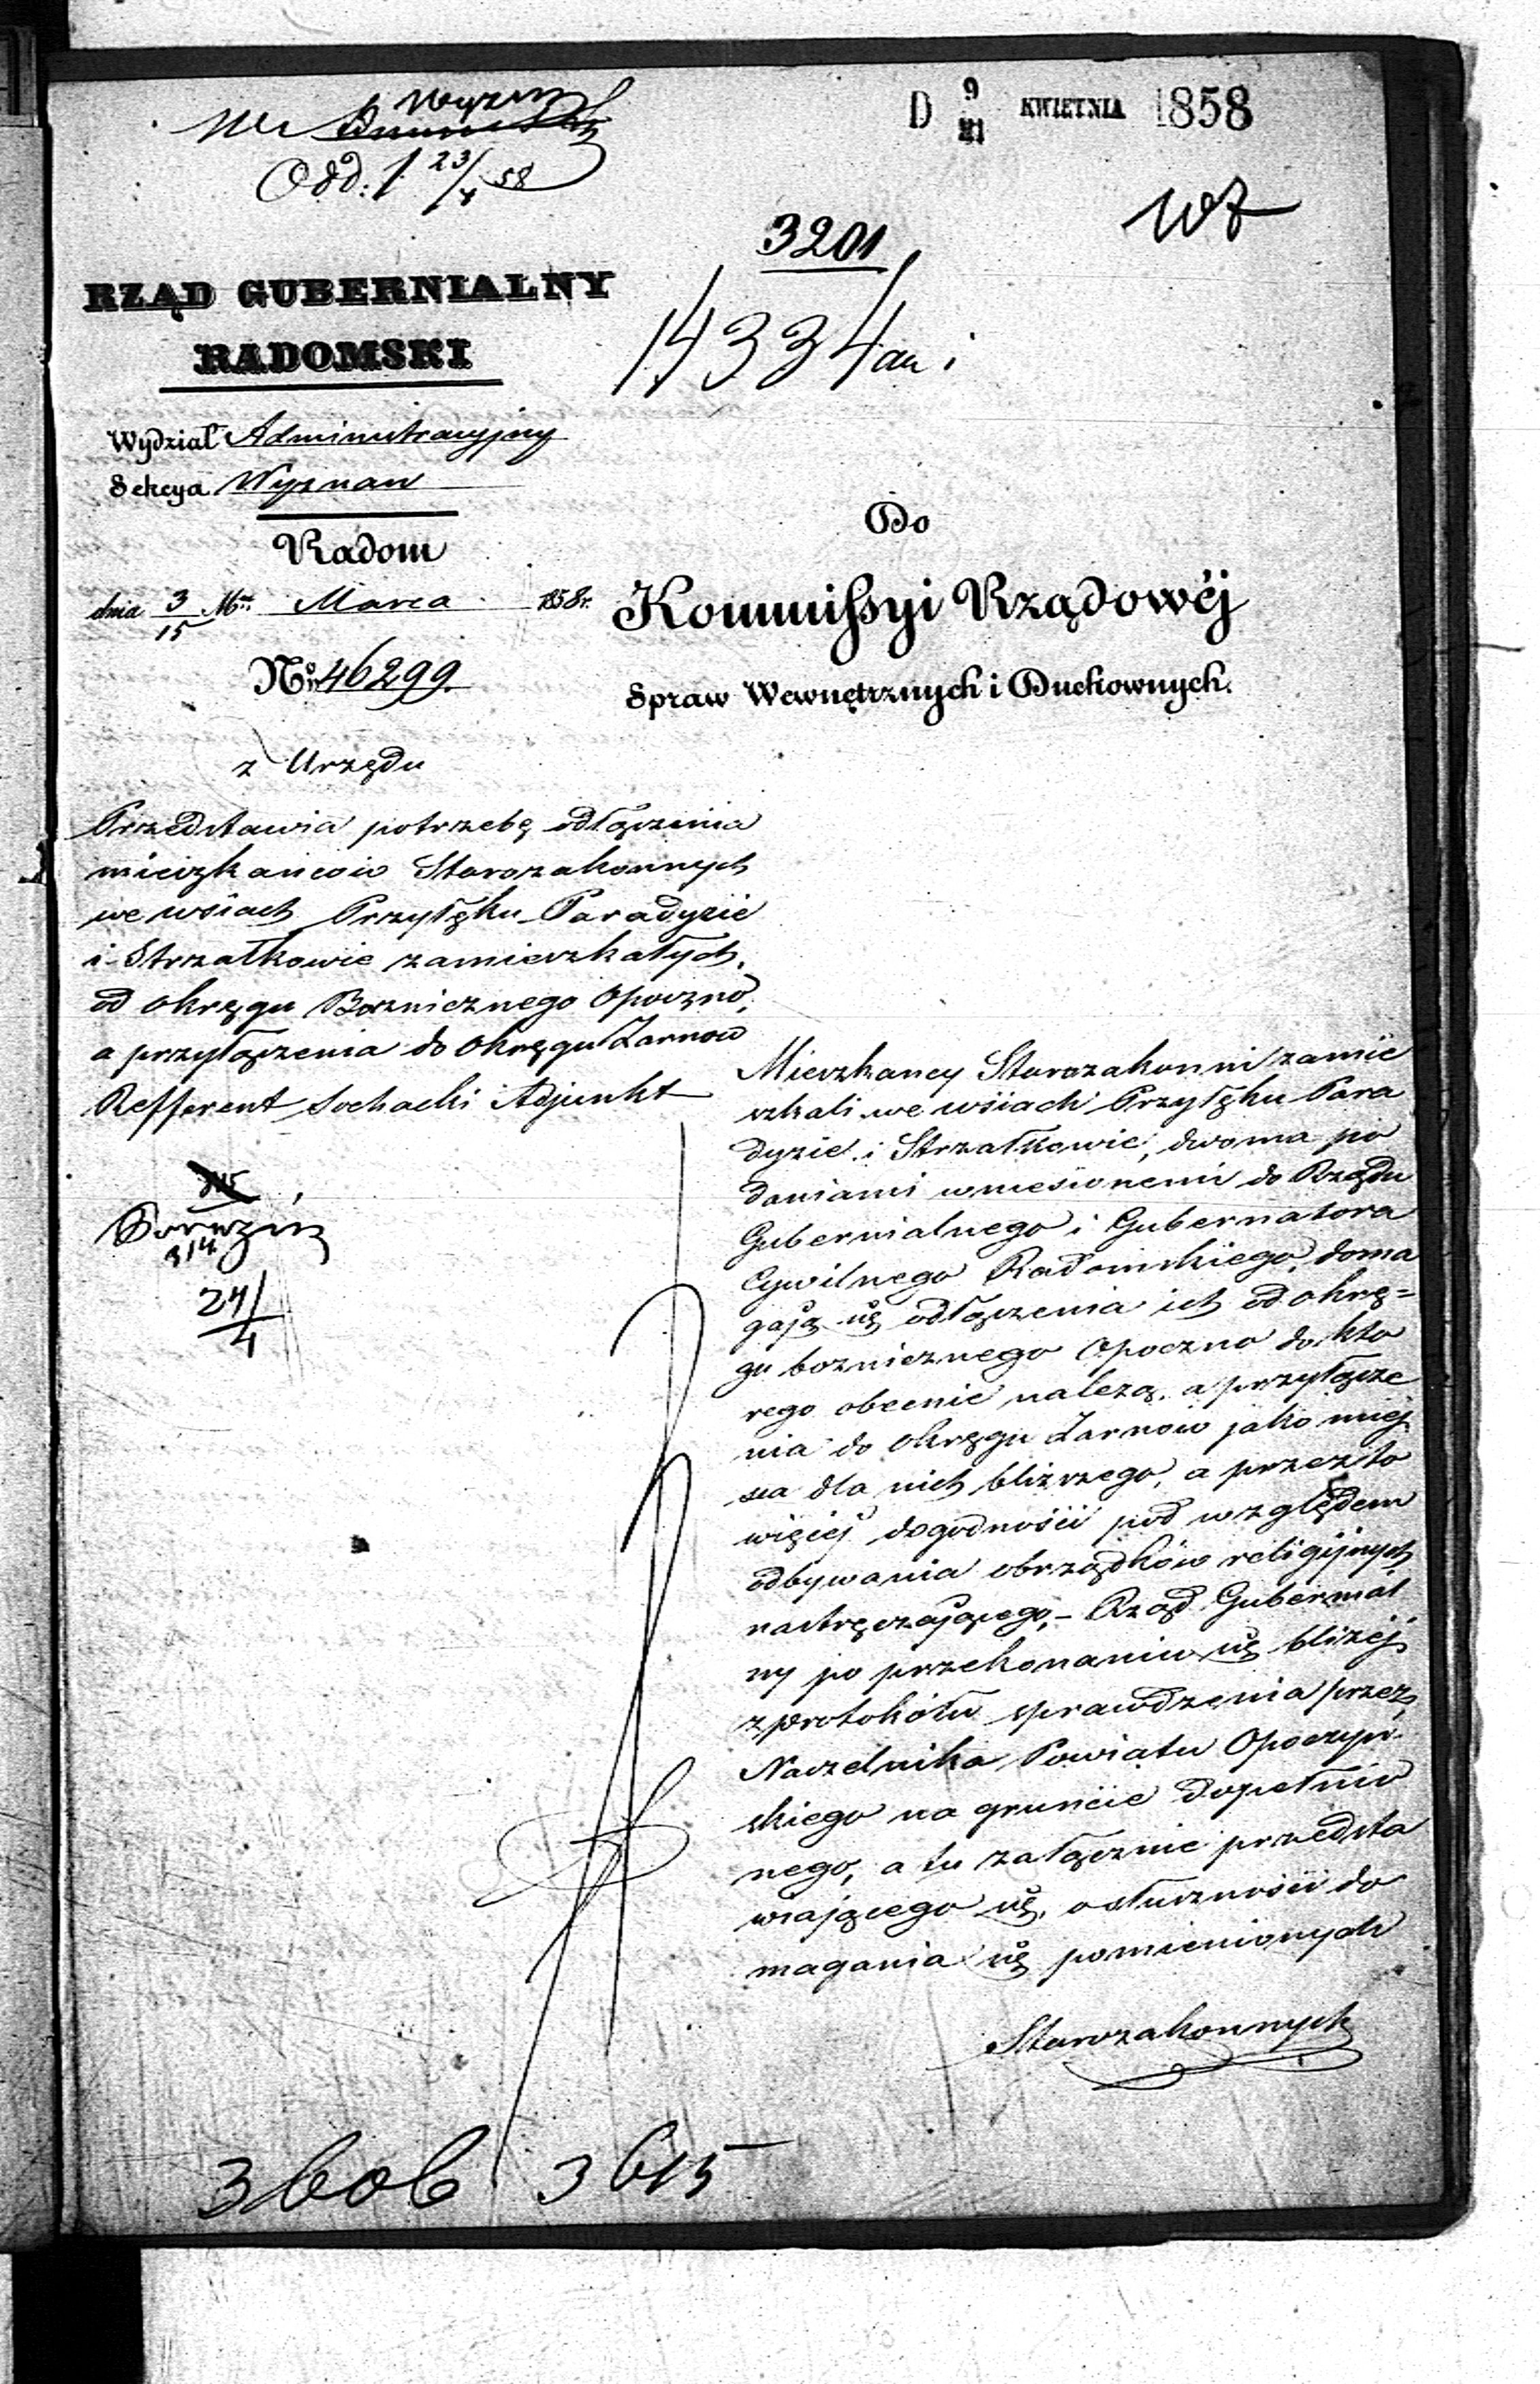 Wyzn
Odd: 1 23/4 58
D 9/21 KWIETNIA 1858
3201
14334
RZĄD GUBERNIALNY
RADOMSKI
Wydział Administracyjny
Sekcya Wyznań
Radom
dnia 3/15 Mca Marca 1858r.
No 46299.
z Urzędu
Przedstawia potrzebę odłączenia
mieszkańców Starozakonnych
we wsiach Przyłęku Paradyzie
i Strzałkowie zamieszkałych,
od okręgu Bożnicznego Opoczno,
a przyłączenia do okręgu Żarnow
Refferent Sochacki Adjunkt
24/4
Do
Kommissyi Rządowéj
Spraw Wewnętrznych i Duchownych.
Mieszkancy Starozakonni zamie
szkali we wsiach Przyłęku Para
dyzie i Strzałkowie, dwoma po
daniami wniesionemi do Rządu
Gubernialnego i Gubernatora
Cywilnego Radomskiego, doma
gają się odłączenia ich od okrę=
gu bożnicznego Opoczno do któ
rego obecnie należą, a przyłącze
nia do okręgu Żarnow jako miej
sca dla nich bliższego, a przez to
więcej dogodności pod względem
odbywania obrządków religijnych
nastręczającego, – Rząd Gubernial
ny po przekonaniu się bliżej
z protokółu sprawdzenia przez
Naczelnika Powiatu Opoczyń
skiego na gruncie dopełnio
nego, a tu załącznie przedsta
wiającego się, o słuszności do
magania się pomienionych
Starozakonnych
3606 3615